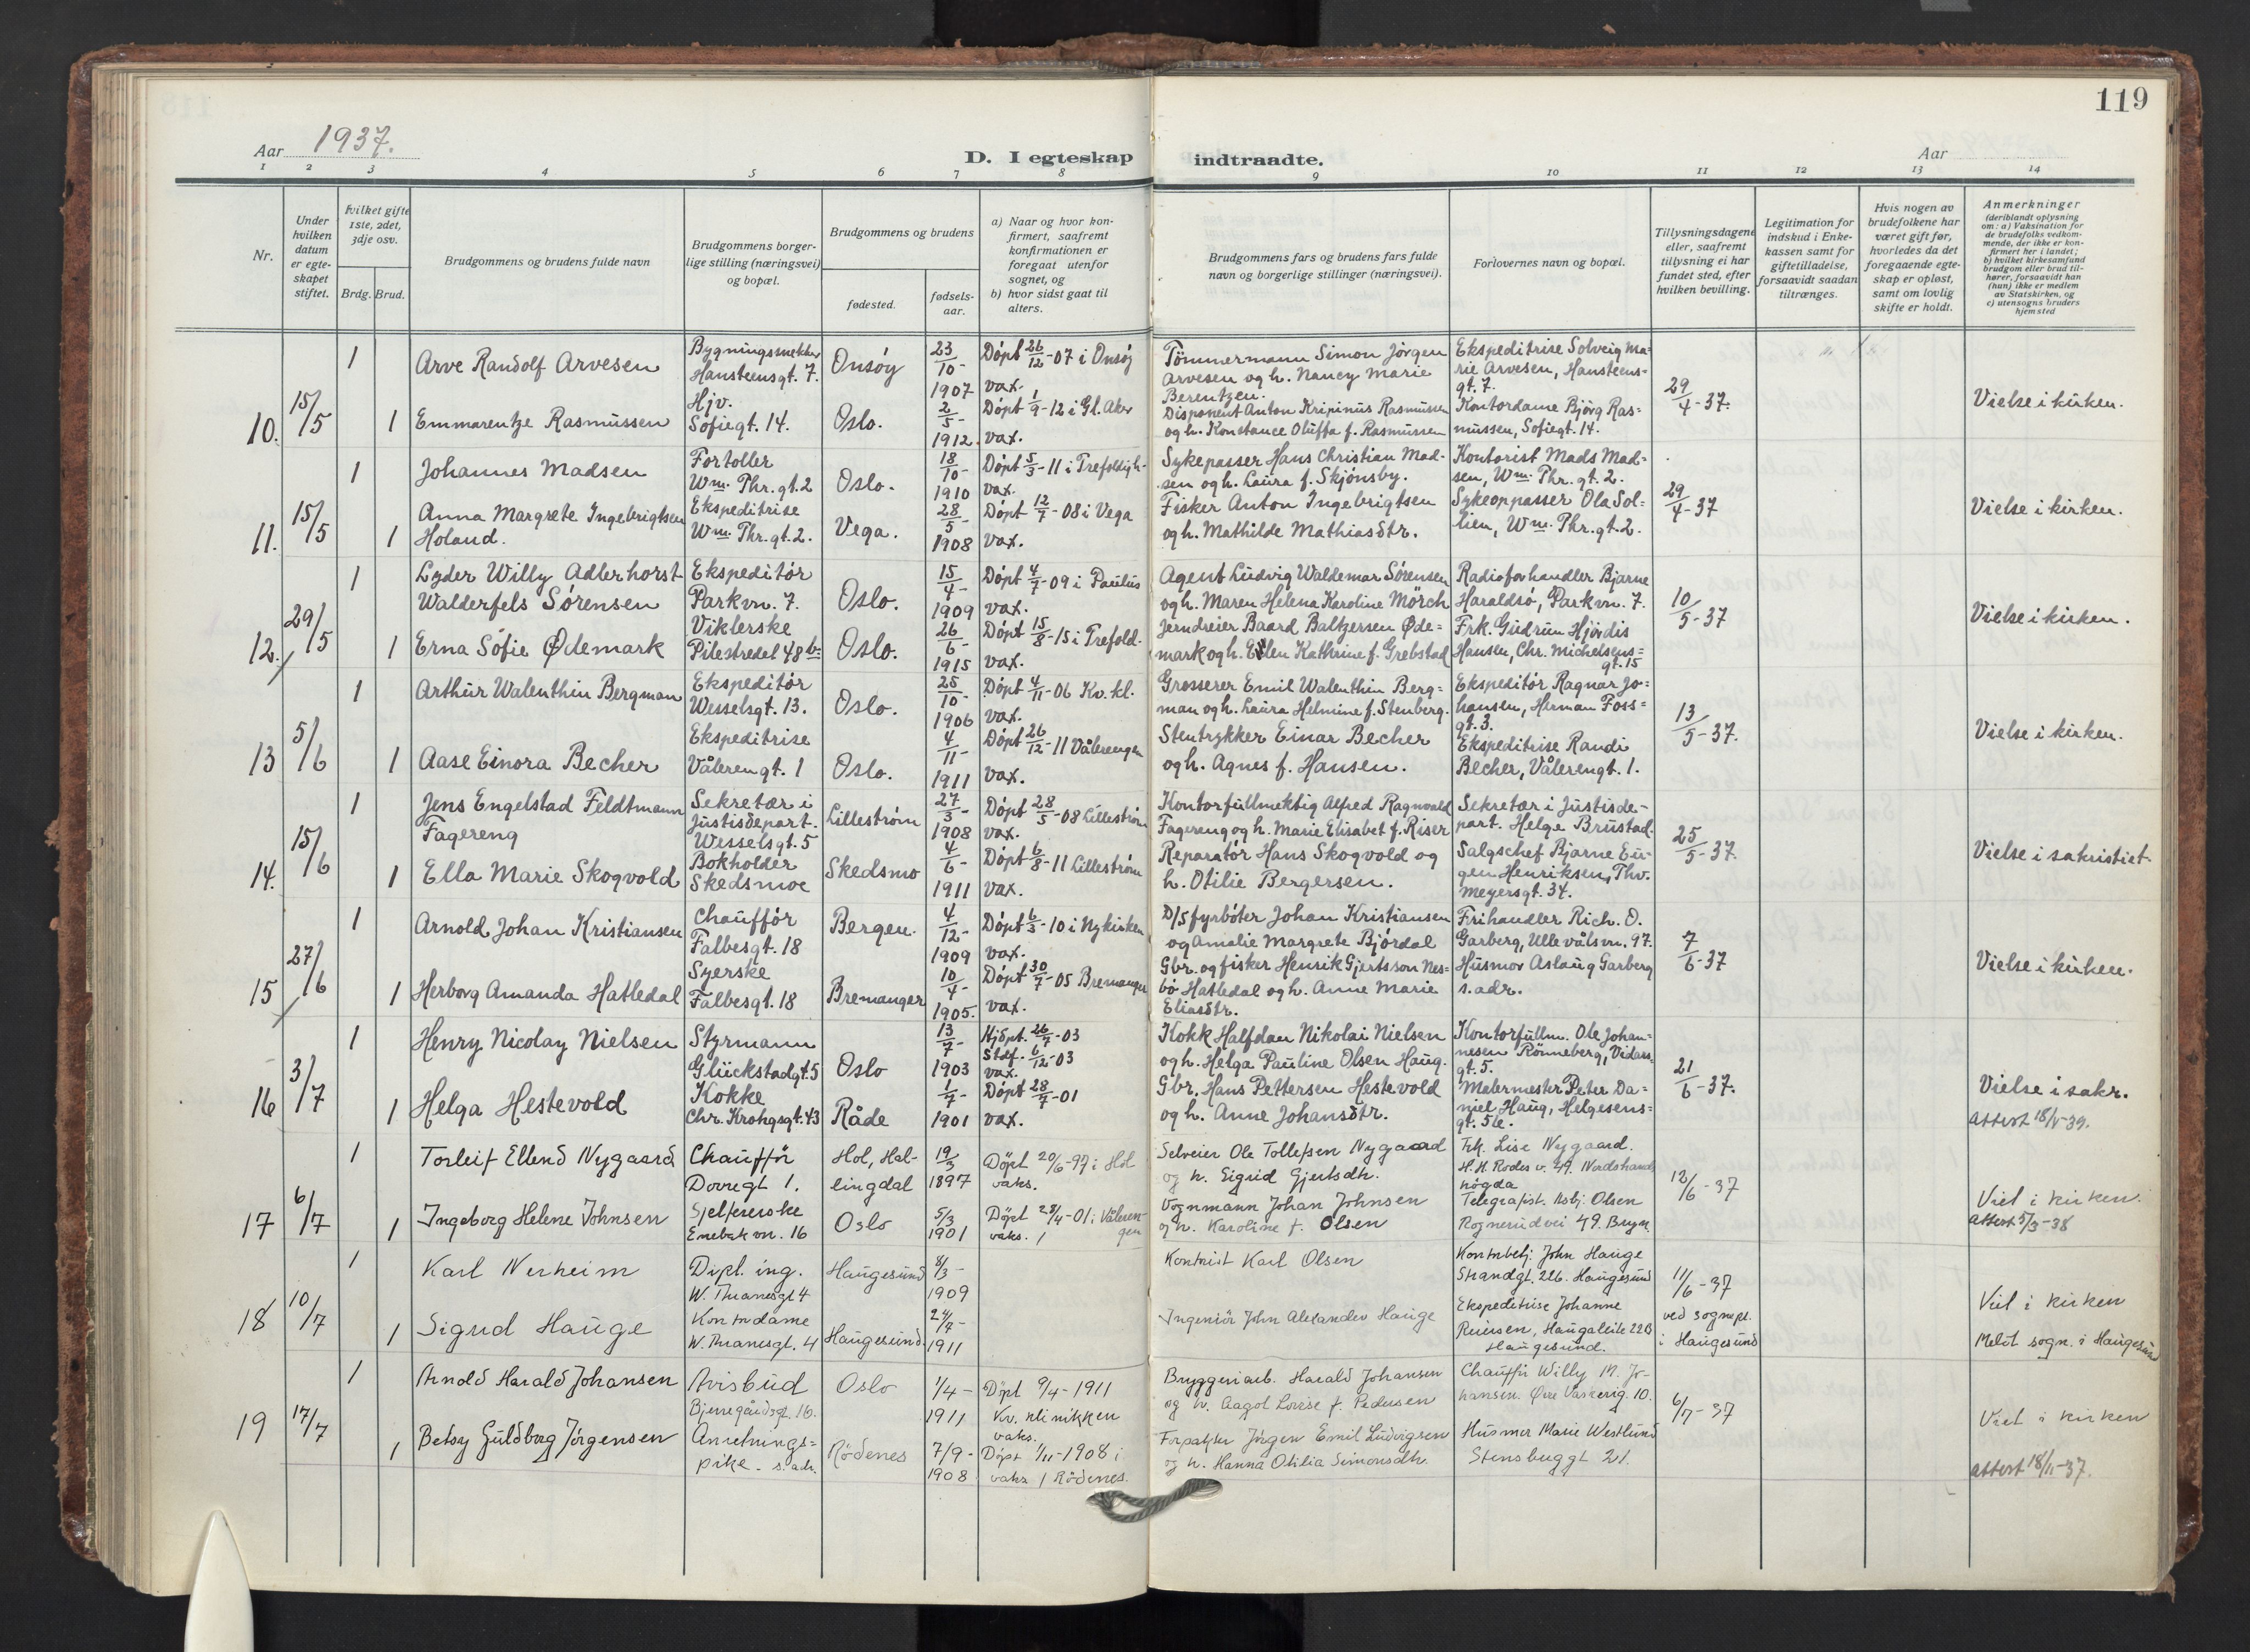 119
Aar 1937.
D. I egteskap indtraadte.
Aar
1 2 3 4 5 6 7 8 9 10 11 12 13 14
Nr.
Under hvilken datum er egteskapet stiftet.
Hvilket gifte 1ste, 2det, 3dje osv.
Brdg. Brud.
Brudgommens og brudens fulde navn
Brudgommens borgerlige stilling (næringsvei) og bopæl.
Brudgommens og brudens
fødested.
fødselsaar.
a) Naar og hvor konfirmert, saafremt konfirmationen er foregaat utenfor sognet, og
b) hvor sidst gaat til alters.
Brudgommens fars og brudens fars fulde navn og borgerlige stillinger (næringsvei).
Forlovernes navn og bopæl.
Tillysningsdagene eller, saafremt tillysning ei har fundet sted, efter hvilken bevilling.
Legitimation for indskud i Enkekassen samt for giftetilladelse, forsaavidt saadan tiltrænges.
Hvis nogen av brudefolkene har været gift før, hvorledes da det foregaaende egteskap er opløst, samt om lovlig skifte er holdt.
Anmerkninger
(deriblandt oplysning om: a) Vaksination for de brudefolks vedkommende, der ikke er konfirmert her i landet;
b) hvilket kirkesamfund brudgom eller brud tilhører, forsaavidt han (hun) ikke er medlem av Statskirken, og
c) utensogns bruders hjemsted
10. 15/5
1 Arve Randolf Arvesen Bygningssnekker Hansteensgt. 7. Onsöy 23/10- 1907 Döpt 26/12-07 i Onsöy vax. Tömmermann Simon Jörgen Arvesen og h. Nancy Marie Berentzen. Ekspeditrise Solveig Marie Arvesen, Hansteensgt. 7. 29/4-37.
1 Emmarentze Rasmussen Hjv. Sofiegt. 14. Oslo. 2/5- 1912. Döpt 1/9-12 i Gl. Aker vax. Disponent Anton Kripinus Rasmussen og h. Konstance Oluffa f. Rasmussen Kontordame Björg Rasmussen, Sofiegt. 14. Vielse i kirken.
11. 15/5
1 Johannes Madsen Fortoller Wm. Thr. gt. 2 Oslo. 18/10- 1910 Döpt 5/3-11 i Trefoldigh. vax. Sykepasser Hans Christian Madsen og h. Laura f. Skjönsby. Kontorist Mads Madsen, Wm. Thr. gt. 2. 29/4-37
1 Anna Margrete Ingebrigtsen Holand. Ekspeditrise Wm. Thr. gt. 2. Vega. 28/5- 1908 Döpt 12/7-08 i Vega vax. Fisker Anton Ingebrigtsen og h. Mathilde Mathiasdtr. Sykeoppasser Ola Sollien, Wm. Thr. gt. 2. Vielse i kirken.
12. 29/5
1 Lyder Willy Adlerhorst Walderfels Sörensen Ekspeditör Parkvn. 7. Oslo. 15/4- 1909 Döpt 4/7-09 i Paulus vax. Agent Ludvig Waldemar Sörensen og h. Maren Helena Karoline Mörch Radioforhandler Bjarne Haraldsö, Parkvn. 7. 10/5-37
1 Erna Sófie Ødemark Viklerske Pilestredet 48 b Oslo. 26/6- 1915 Döpt 15/8-15 i Trefold. vax. Jerndreier Baard Baltzersen Ødemark og h. Ellen Kathrine f. Grebstad Frk. Gudrun Hjördis Hansen, Chr. Michelsensgt. 15 Vielse i kirken.
13 5/6
1 Arthur Walenthin Bergman Ekspeditör Wesselsgt. 13. Oslo. 25/10- 1906 Döpt 4/11-06 Kv. kl. vax. Grosserer Emil Walenthin Bergman og h. Laura Helmine f. Stenberg. Ekspeditör Ragnar Johansen, Herman Fossgt. 3. 13/5-37.
1 Aase Einora Becher Ekspeditrise Vålerengt. 1 Oslo. 4/11- 1911 Döpt 26/12-11 Vålerengen vax. Stentrykker Einar Becher og h. Agnes f. Hansen. Ekspeditrise Randi Becher, Vålerengt. 1. Vielse i kirken.
14. 15/6
1 Jens Engelstad Feldtmann Fagereng Sekretær i Justisdepart. Wesselsgt. 5 Lilleström 27/3- 1908 Döpt 28/5-08 Lilleström vax. Kontorfullmektig Alfred Ragnvald Fagereng og h. Marie Elisabet f. Riser Sekretær i Justisdepart. Helge Brustad. 25/5-37.
1 Ella Marie Skogvold Bokholder Skedsmoe Skedsmo 4/6- 1911 Döpt 6/8-11 Lilleström vax. Reparatör Hans Skogvold og h. Otilie Bergersen. Salgschef Bjarne Eugen Henriksen, Thv. Meyersgt. 34. Vielse i sakristiet.
15 27/6
1 Arnold Johan Kristiansen Chaufför Falbesgt. 18 Bergen. 4/12- 1909 Döpt 6/3-10 i Nykirken vax. D/S fyrböter Johan Kristiansen og Amalie Margrete Björdal Frihandler Rich. O. Garberg, Ullevålsvn. 97. 7/6-37
1 Herborg Amanda Hatledal Syerske Falbesgt. 18 Bremanger 10/4- 1905. Döpt 30/7-05 Bremanger vax. Gbr. og fisker Henrik Gjertsson Nesbö Hatledal og h. Anne Marie Eliasdtr. Husmor Aslaug Garberg s. adr. Vielse i kirken.
16 3/7
1 Henry Nicolay Nielsen Styrmann Glückstadgt. 5 Oslo 13/7- 1903 Hjdpt. 26/7-03 Stdf. 6/12-03 vax. Kokk Halfdan Nikolai Nielsen og h. Helga Pauline Olsen Haug. Kontorfullm. Ole Johannesen Rönneberg, Vidarsgt. 5. 21/6-37.
1 Helga Hestevold Kokke Chr. Krohgsgt. 43 Råde 1/7- 1901 Döpt 28/7-01 vax. Gbr. Hans Pettersen Hestevold og h. Anne Johansdtr. Malermester Peter Daniel Haug, Helgesensgt. 56. Vielse i sakr. Attest 18/1-39.
17 6/7
1 Torleif Ellend Nygaard Chaufför Dovregt 1. Hol, Hallingdal 19/3 1897 Döpt 20/6-97 i Hol vaks. Selveier Ole Tollefsen Nygaard og h. Sigrid Gjertsdh. Frk. Lise Nygaard. H. H. Rodes v. 49. Nordstrandshögda 12/6-37
1 Ingeborg Helene Johnsen Enebakvn. 16 Oslo 5/3 1901 Döpt 28/4-01 i Vålerengen vaks. Vognmann Johan Johnsen og h. Karoline f. Olsen Telegrafist. Asbj. Olsen Rognerudvei 49. Bryn Viet i kirken. Attest 5/3-38
18 10/7
1 Karl Nerheim Dipl. ing. W. Thranesgt 4 Haugesund 8/3- 1909 Kontorist Karl Olsen Kontorbetj. John Hauge Strandgt. 226. Haugesund 11/6-37
1 Sigrid Hauge Kontordame W. Thranesgt. 4 Haugesund 24/4- 1911 Ingeniör John Alexander Hauge Ekspeditrise Johanne Reiersen, Haugaleite 22B Haugesund. ved sognepr. i Haugesund Viet i kirken Meldt sogn. i Haugesund
19 17/7
1 Arnold Harald Johansen Avisbud Bjerregårdsgt. 16. Oslo 1/4- 1911 Döpt 9/4-1911 Kv. klinikken vaks. Bryggeriarb. Harald Johansen og h. Aagot Lovise f. Pedersen Chaufför Willy M. Johansen. Övre Vaskerig. 10. 6/7-37
1 Betsy Guldborg Jörgensen Anretningspike. s. adr. Rödenes 7/9- 1908 Döpt 1/11-1908 i Rödenes. vaks Forpakter Jörgen Emil Ludvigsen og h. Hanna Otilia Simonsdh. Husmor Marie Westlund Stensbuggt 21. Viet i kirken Attest 18/11-37.